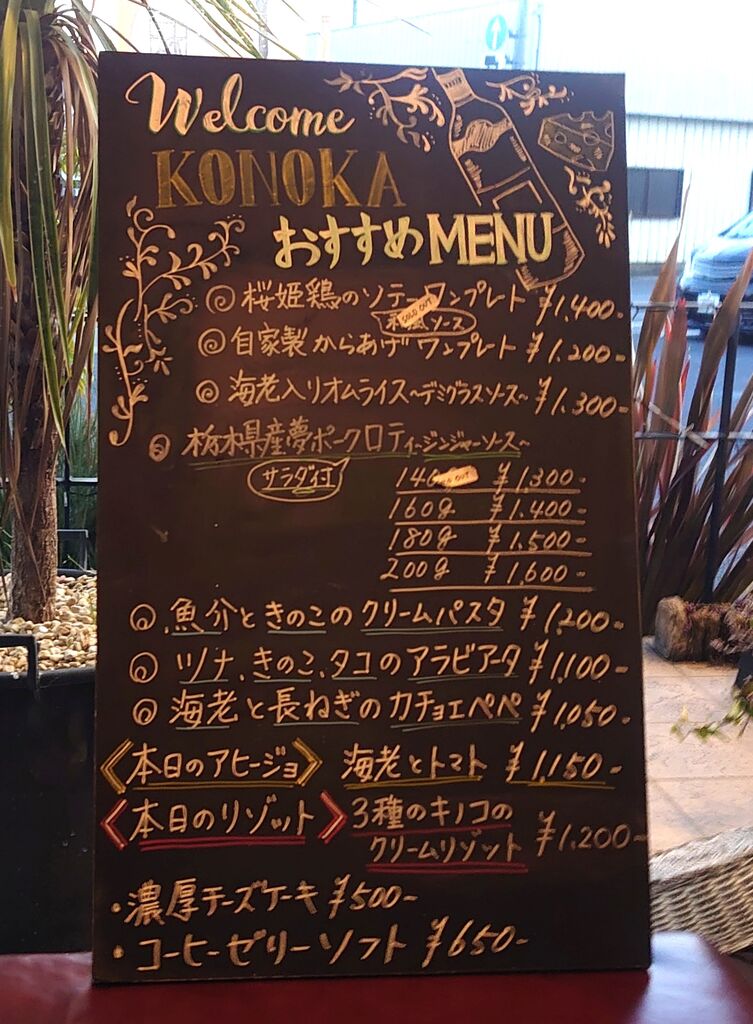 Welcome
KONOKA
おすすめMENU
◎桜姫鶏のソテーワンプレート ¥1,400-
SOLD OUT
ソース
◎自家製からあげワンプレート ¥1,200-
◎海老入りオムライス~デミグラスソース~ ¥1,300-
◎栃木県産夢ポークロティ~ジンジャーソース~
サラダ付
140 OUT ¥1,300-
160g ¥1,400-
180g ¥1,500-
200g ¥1,600-
◎魚介ときのこのクリームパスタ ¥1,200-
◎ツナ、きのこ、タコのアラビアータ ¥1,100-
◎海老と長ねぎのカチョエペペ ¥1,050-
《本日のアヒージョ》 海老とトマト ¥1,150-
《本日のリゾット》 3種のキノコの
クリームリゾット ¥1,200-
・濃厚チーズケーキ ¥500-
・コーヒーゼリーソフト ¥650-